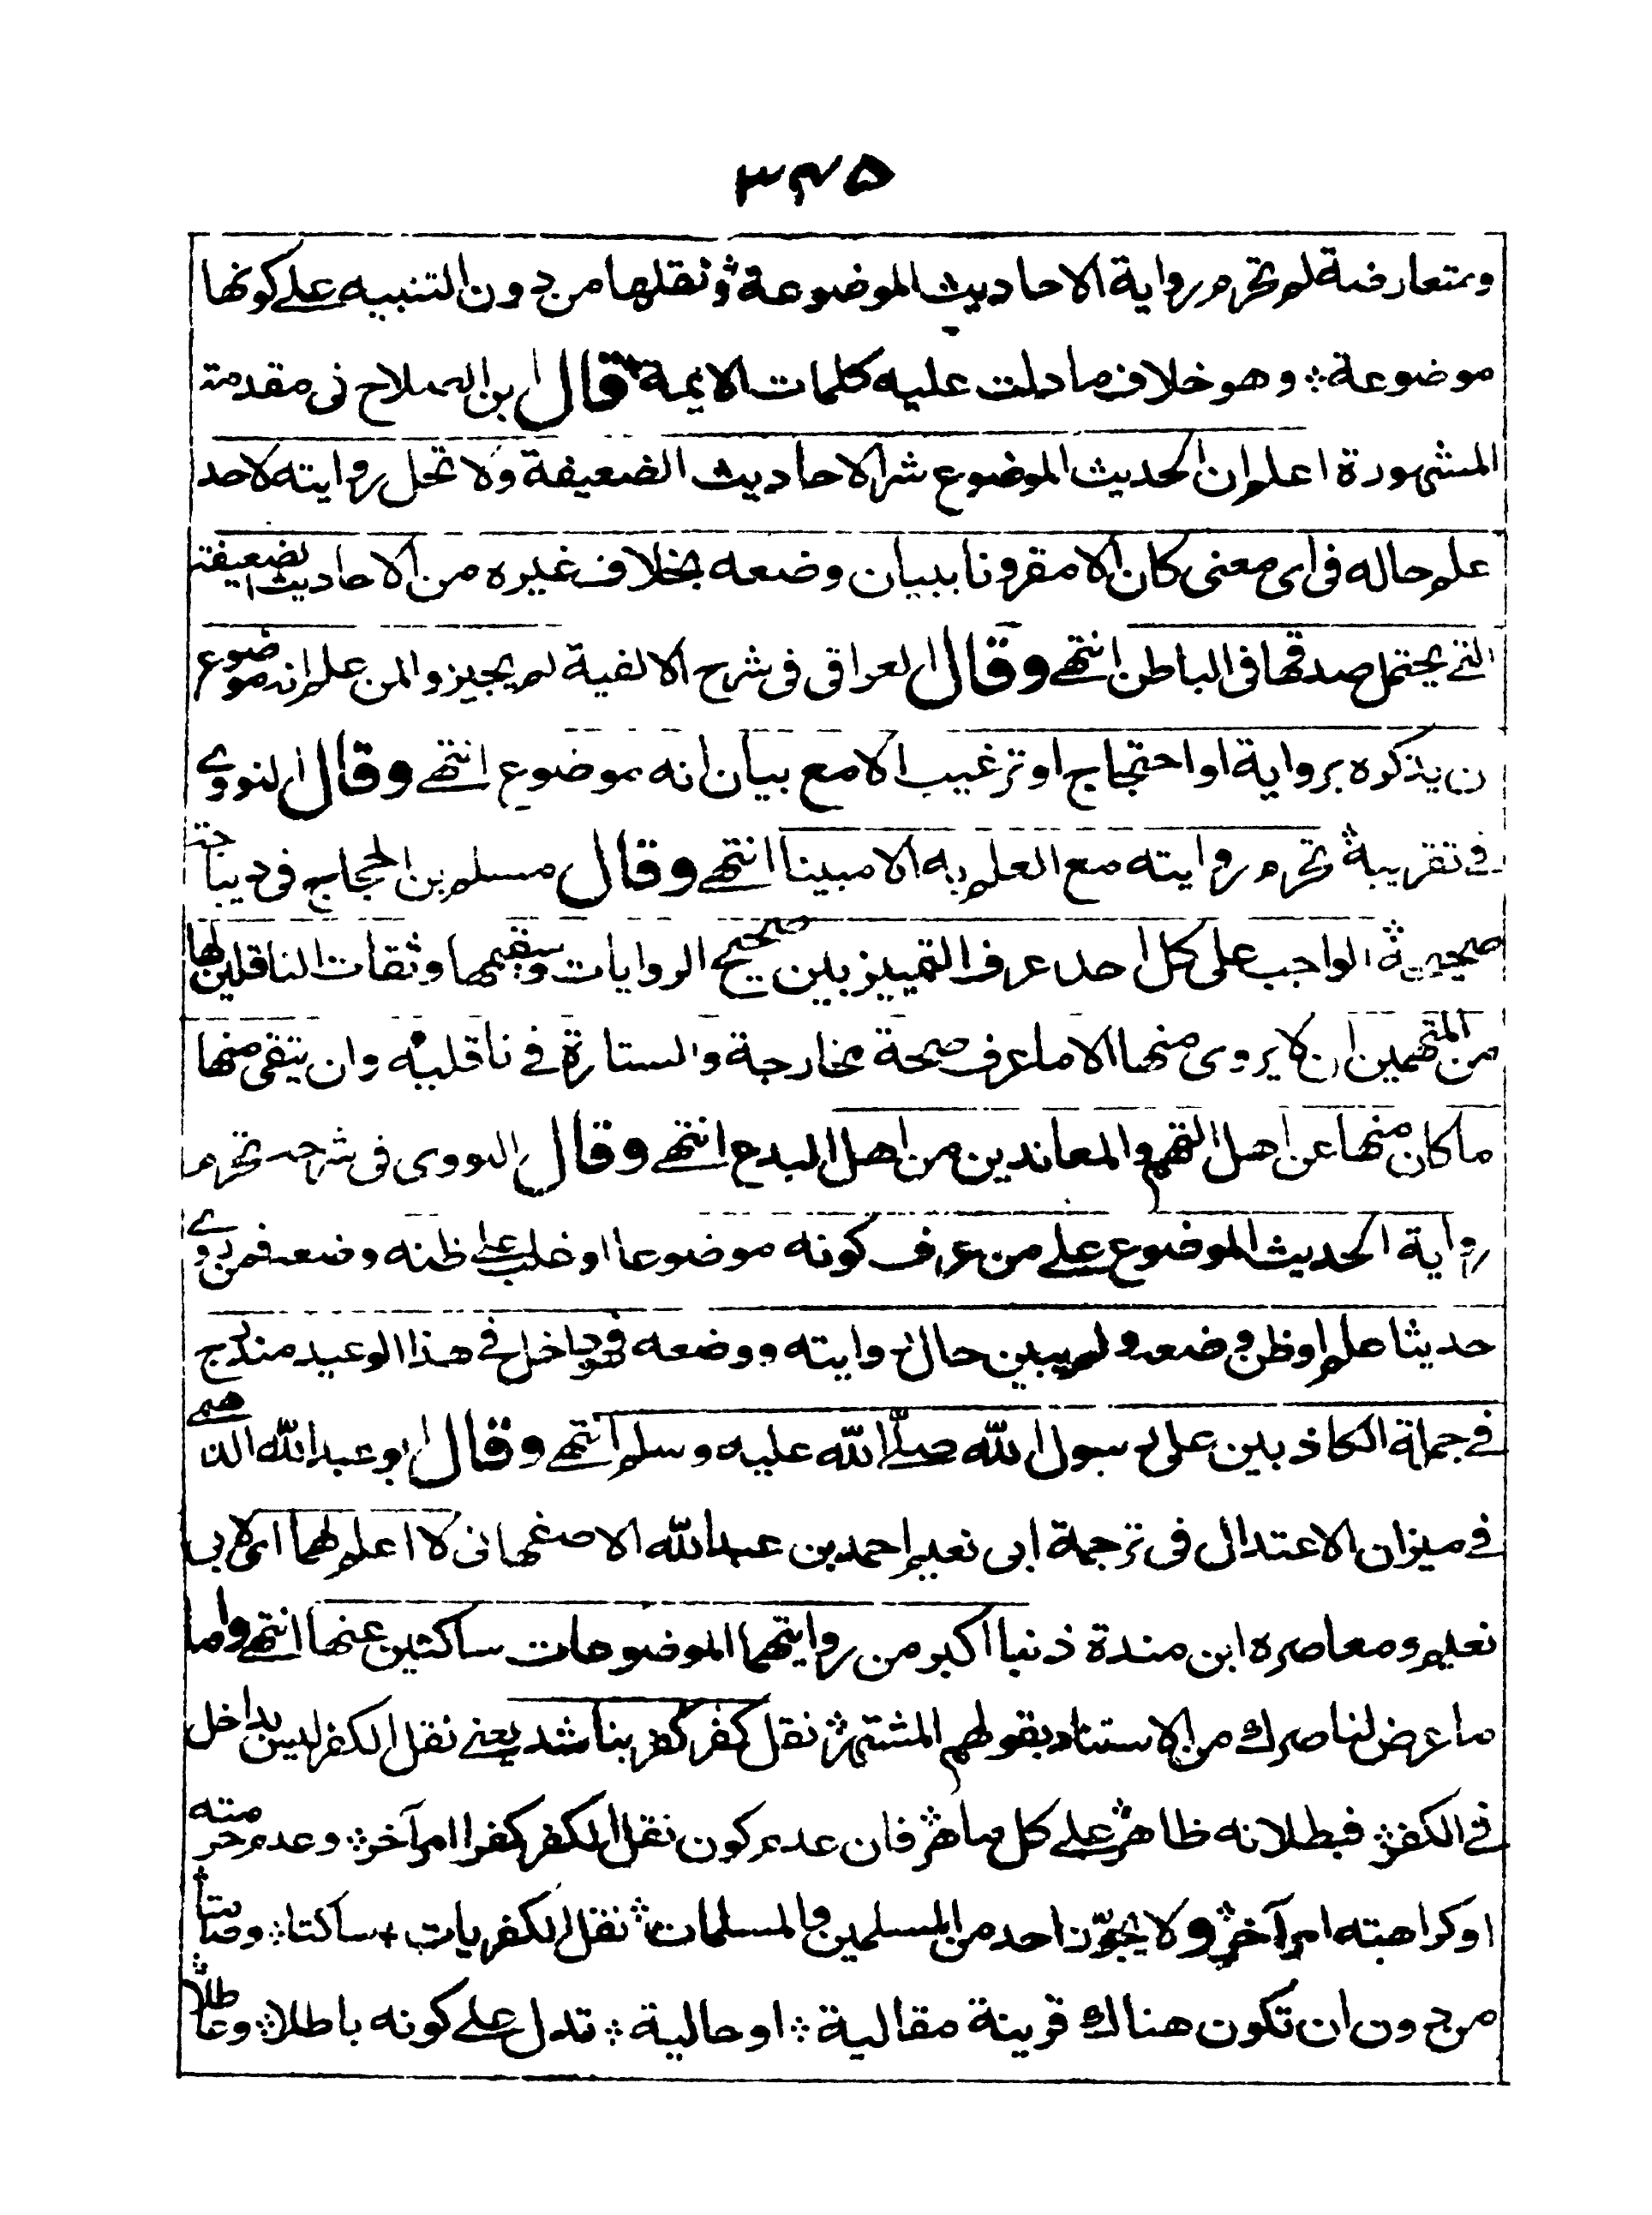 ۳۴۵
ومتعارضة لم تحرم رواية الاحاديث الموضوعة ونقلها من دون التنبيه على كونها
موضوعة وهو خلاف ما دلت عليه كلمات الايمة قال ابن الصلاح فى مقدمته
المشهورة اعلم ان الحديث الموضوع شر الاحاديث الضعيفة ولا تحل روايته لاحد
علم حاله فى اى معنى كان الا مقرونا ببيان وضعه بخلاف غيره من الاحاديث الضعيفة
التے يحتمل صدقها فى الباطن انتهے وقال العراقى فى شرح الالفية لم يجيزوا لمن علم انه موضوع
ن يذكره برواية او احتجاج او ترغيب الا مع بيان انه موضوع انتهے وقال النووے
فے تقريبه تحرم روايته مع العلم به الا مبينا انتهے وقال مسلم بن الحجاج فى ديباجة
صحيحه الواجب على كل احد عرف التمييز بين صحيح الروايات وسقيمها وثقات الناقلين لها
من المتهمين ان لا يروى منها الا ما عرف صحة مخارجة والستارة فے ناقليه وان يتقى منها
ما كان منها عن اهل التهم والمعاندين من اهل البدع انتهے وقال النووى فى شرحه تحرم
رواية الحديث الموضوع علے من عرف كونه موضوعا او غلب علے ظنه وضعه فمن روے
حديثا علم او ظن وضعه ولم يبين حال روايته ووضعه فهو داخل فے هذا الوعيد مندرج
فے جملة الكاذبين على رسول الله صلے الله عليه وسلم انتهے وقال ابو عبد الله الذهبے
فے ميزان الاعتدال فى ترجمة ابى نعيم احمد بن عبد الله الاصفهانى لا اعلم لهما اى لابى
نعيم ومعاصره ابن مندة ذنبا اكبر من روايتهما الموضوعات ساكتين عنها انتهے واما
ما عرض لناصرك من الاستناد بقولهم المشتهر نقل كفر كفر بناشد يعنے نقل الكفر ليس بداخل
فے الكفر فبطلانه ظاهر علے كل ماهر فان عدم كون نقل الكفر كفرا امر آخر وعدم حرمته
او كراهته امر آخر ولا يجوّز احد من المسلمين والمسلمات نقل الكفريات ساكتا وصامتا
من دون ان تكون هناك قرينة مقالية او حالية تدل علے كونه باطلا وعاطلا